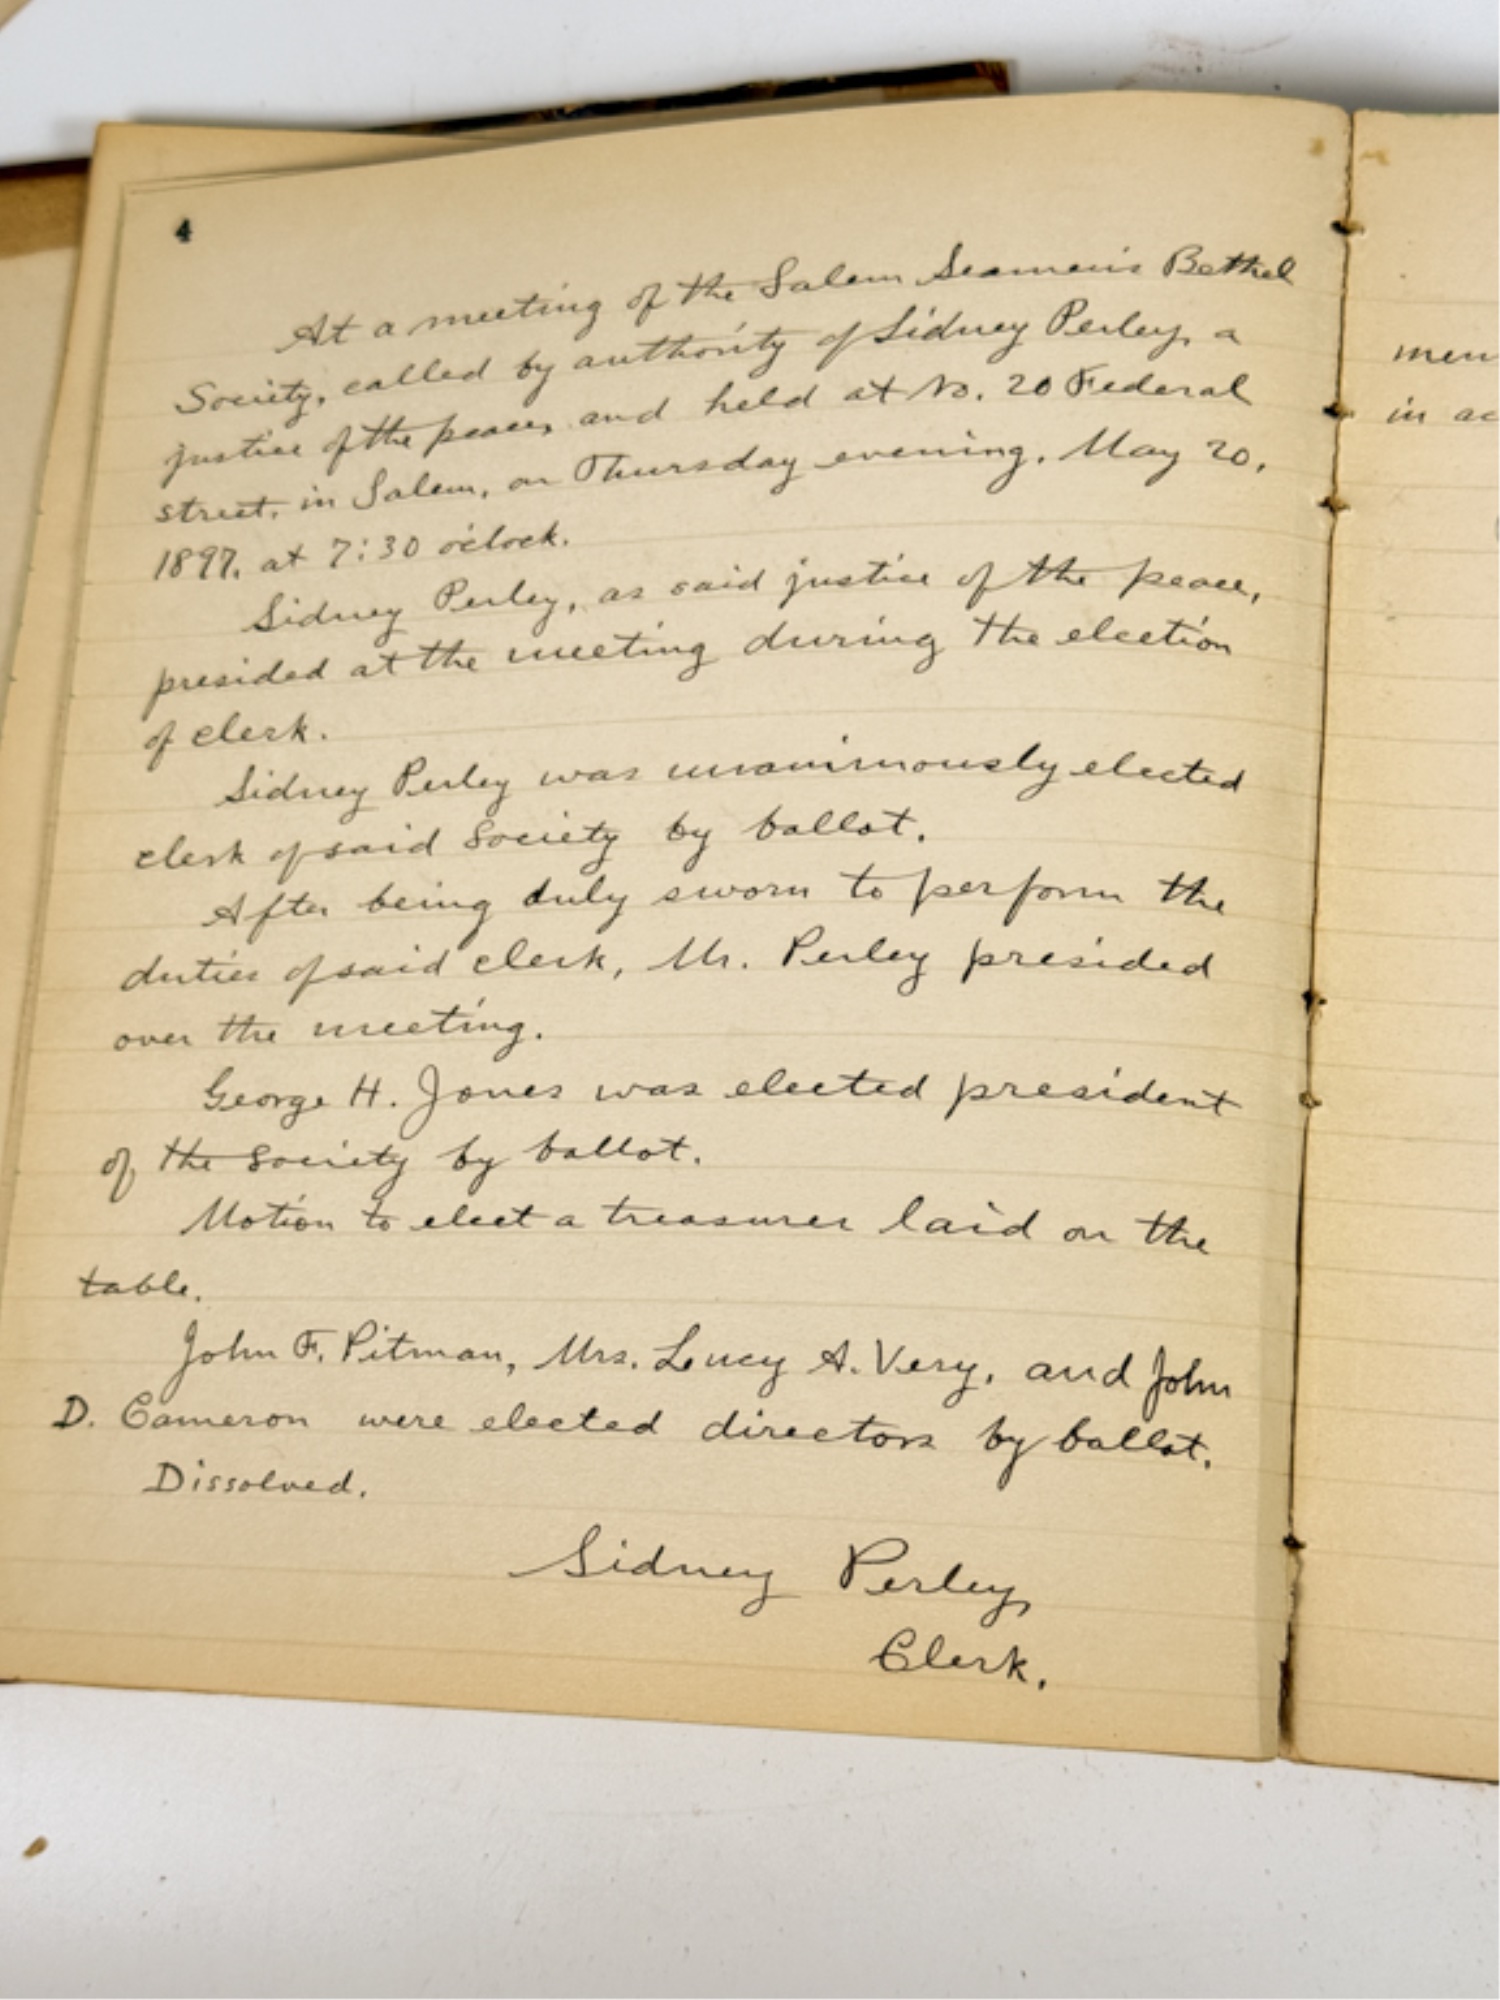 4
At a meeting of the Salem Seamen's Bethel
Society, called by authority of Sidney Perley, a
justice of the peace, and held at No. 20 Federal
street, in Salem, on Thursday evening, May 20,
1897, at 7:30 o'clock.
Sidney Perley, as said justice of the peace,
presided at the meeting during the election
of clerk.
Sidney Perley was unanimously elected
clerk of said Society by ballot.
After being duly sworn to perform the
duties of said clerk, Mr. Perley presided
over the meeting.
George H. Jones was elected president
of the Society by ballot.
Motion to elect a treasurer laid on the
table.
John F. Pitman, Mrs. Lucy A. Very, and John
D. Cameron were elected directors by ballot.
Dissolved.
Sidney Perley,
Clerk.
men
in ac